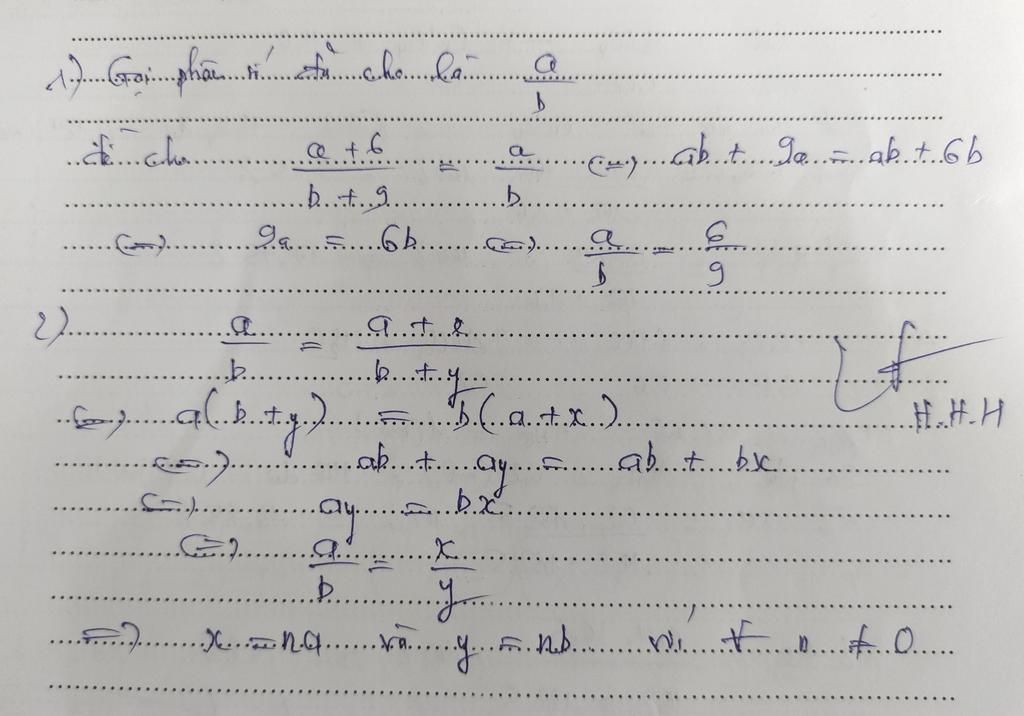 1) Gọi phân số đã cho là a/b
đề cho (a + 6)/(b + 9) = a/b <=> ab + 9a = ab + 6b
<=> 9a = 6b <=> a/b = 6/9
2) a/b = (a + x)/(b + y)
<=> a(b + y) = b(a + x)
H.H.H
<=> ab + ay = ab + bx
<=> ay = bx
<=> a/b = x/y
=> x = na và y = nb với ∀ n ≠ 0